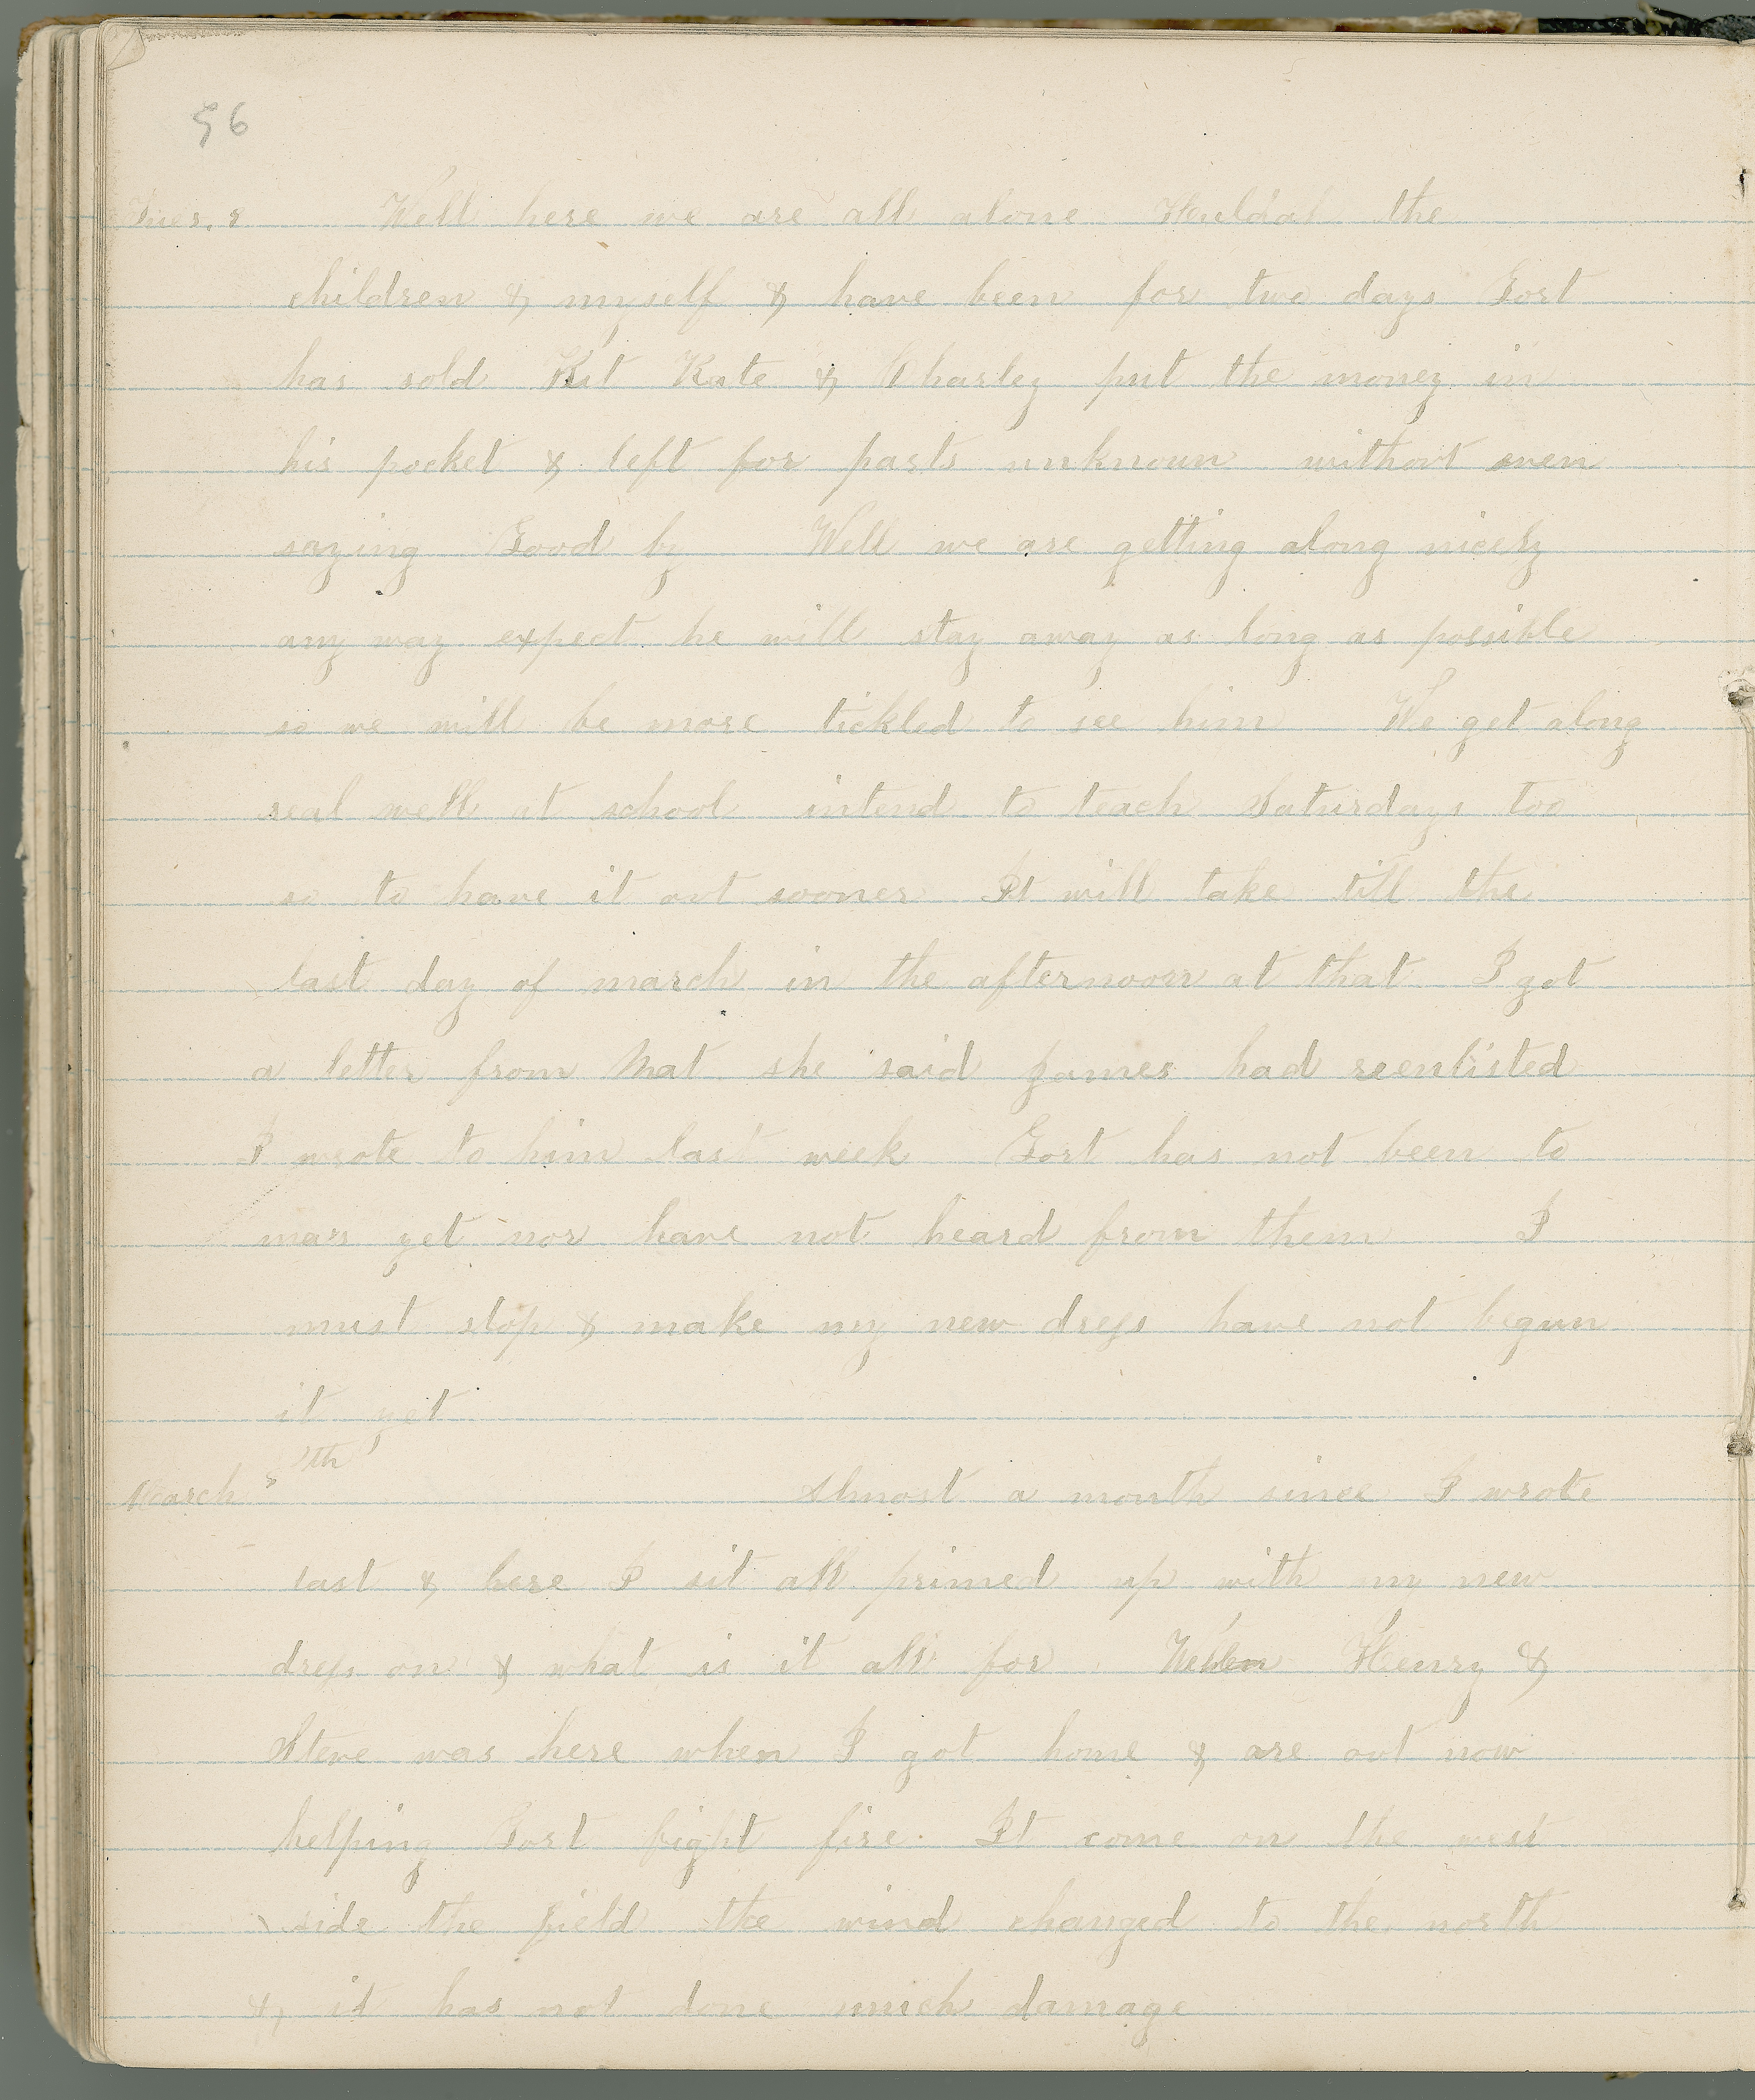 56
Tues. 8 Well here we are all alone Huldah the
children & myself & have been for two days Gort
has sold Kit Kate & Charley put the money in
his pocket & left for parts unknown without even
saying Good by Well we are getting along nicely
any way expect he will stay away as long as possible
so we will be more tickled to see him We get along
real well at school intend to teach Saturdays too
so to have it out sooner It will take till the
last day of march in the afternoon at that I got
a letter from Mat she said James had reenlisted
I wrote to him last week Gort has not been to
ma's yet nor have not heard from them I
must stop & make my new dress have not begun
it yet
March 5th Almost a month since I wrote
last & here I sit all primed up with my new
dress on & what is it all for Henry &
Steve was here when I got home & are out now
helping Gort fight fire. It come on the west
side the field the wind changed to the north
& it has not done much damage